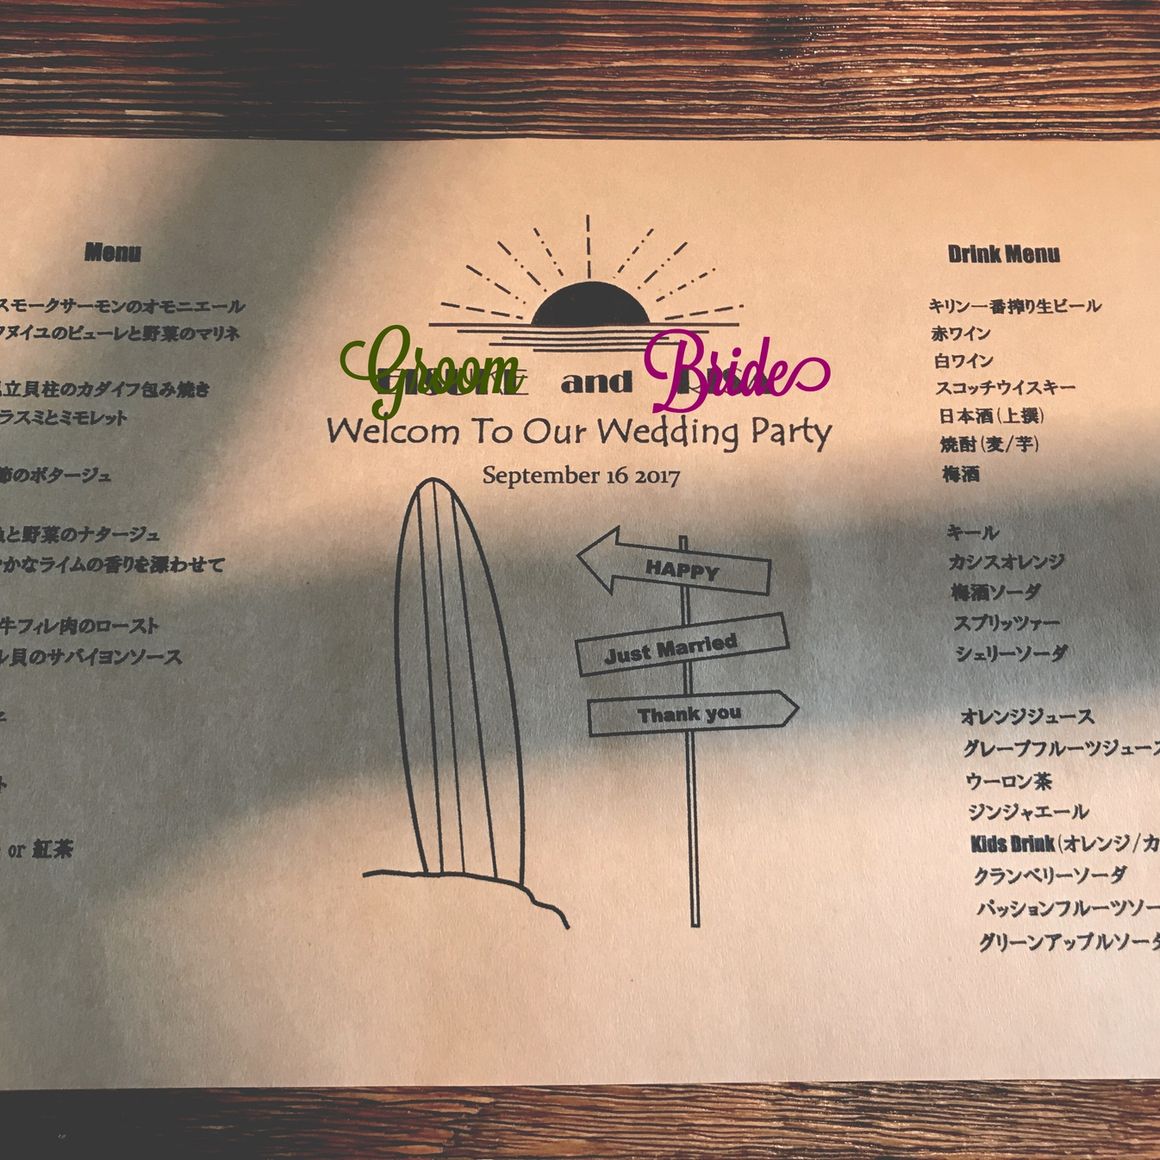 Groom and Bride
Welcom To Our Wedding Party
September 16 2017
HAPPY
Just Married
Thank you
Menu
スモークサーモンのオモニエール
ヌイユのピューレと野菜のマリネ
立貝柱のカダイフ包み焼き
ラスミとミモレット
節のポタージュ
と野菜のナタージュ
かなライムの香りを漂わせて
牛フィレ肉のロースト
貝のサバイヨンソース
ト
or 紅茶
Drink Menu
キリン一番搾り生ビール
赤ワイン
白ワイン
スコッチウイスキー
日本酒(上撰)
焼酎(麦/芋)
梅酒
キール
カシスオレンジ
梅酒ソーダ
スプリッツァー
シェリーソーダ
オレンジジュース
グレープフルーツジュース
ウーロン茶
ジンジャエール
Kids Drink(オレンジ/カ
クランベリーソーダ
パッションフルーツソー
グリーンアップルソーダ